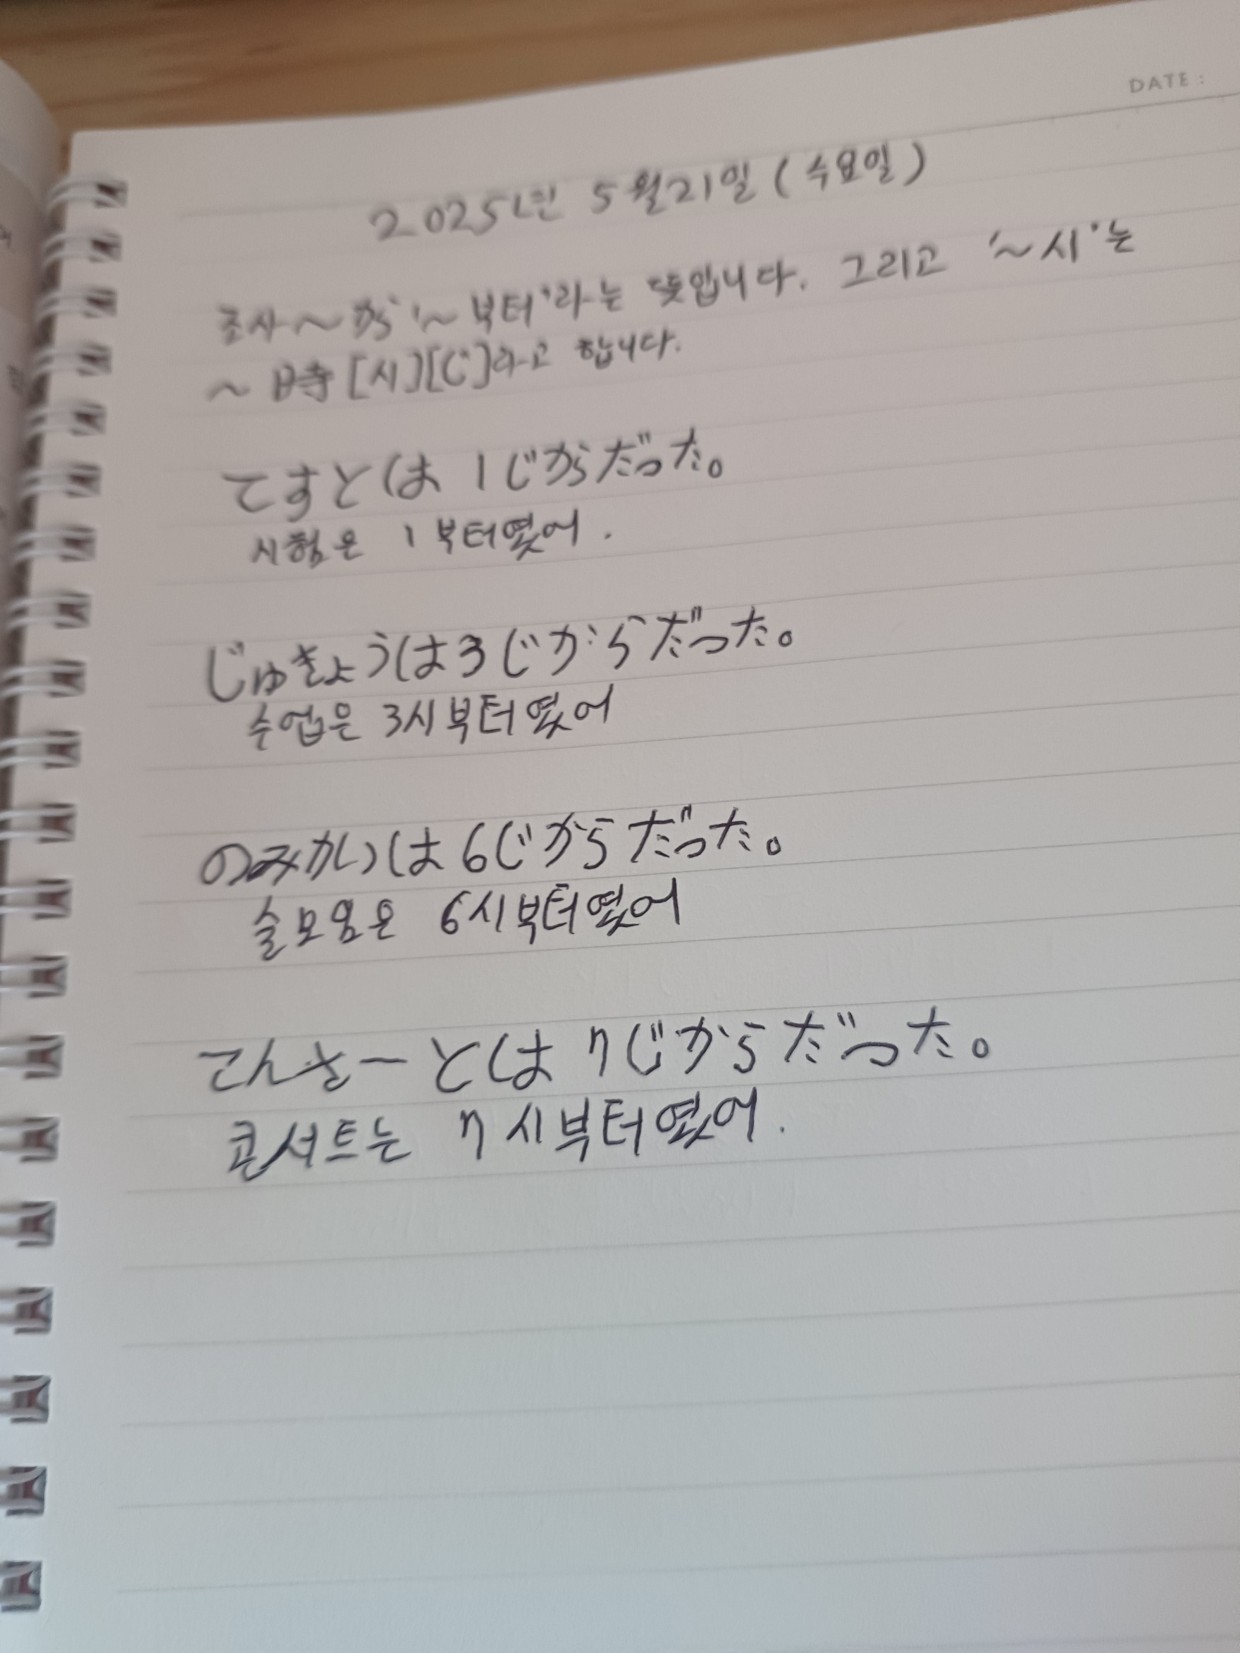 DATE :
2025년 5월21일 (수요일)
조사 ~から '~부터'라는 뜻입니다. 그리고 '~시'는
~ 時 [시][じ]라고 합니다.
てすとは 1じからだった。
시험은 1부터였어.
じゅぎょうは3じからだった。
수업은 3시부터였어
のみかいは6じからだった。
술모임은 6시부터였어
こんさーとは 7じからだった。
콘서트는 7시부터였어.